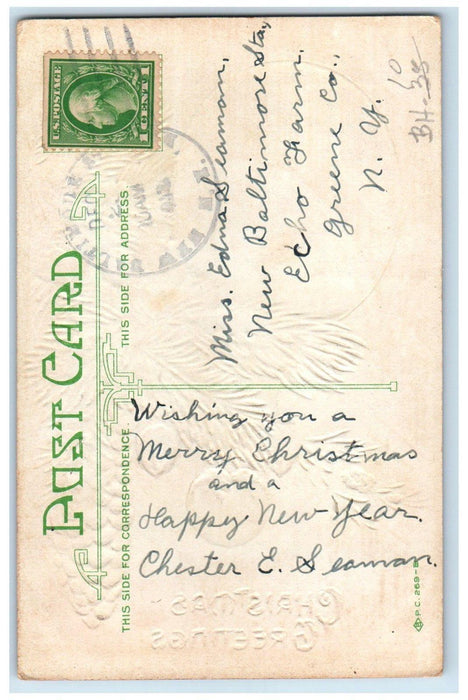 POST CARD
THIS SIDE FOR CORRESPONDENCE
THIS SIDE FOR ADDRESS
U.S. POSTAGE
1 CENT 1
Miss. Edna Seaman,
New Baltimore Sta,
Echo Farm.
Greene Co.,
N. Y.
Wishing you a
Merry Christmas
and a
Happy New Year.
Chester E. Seaman.
CHRISTMAS
GREETINGS